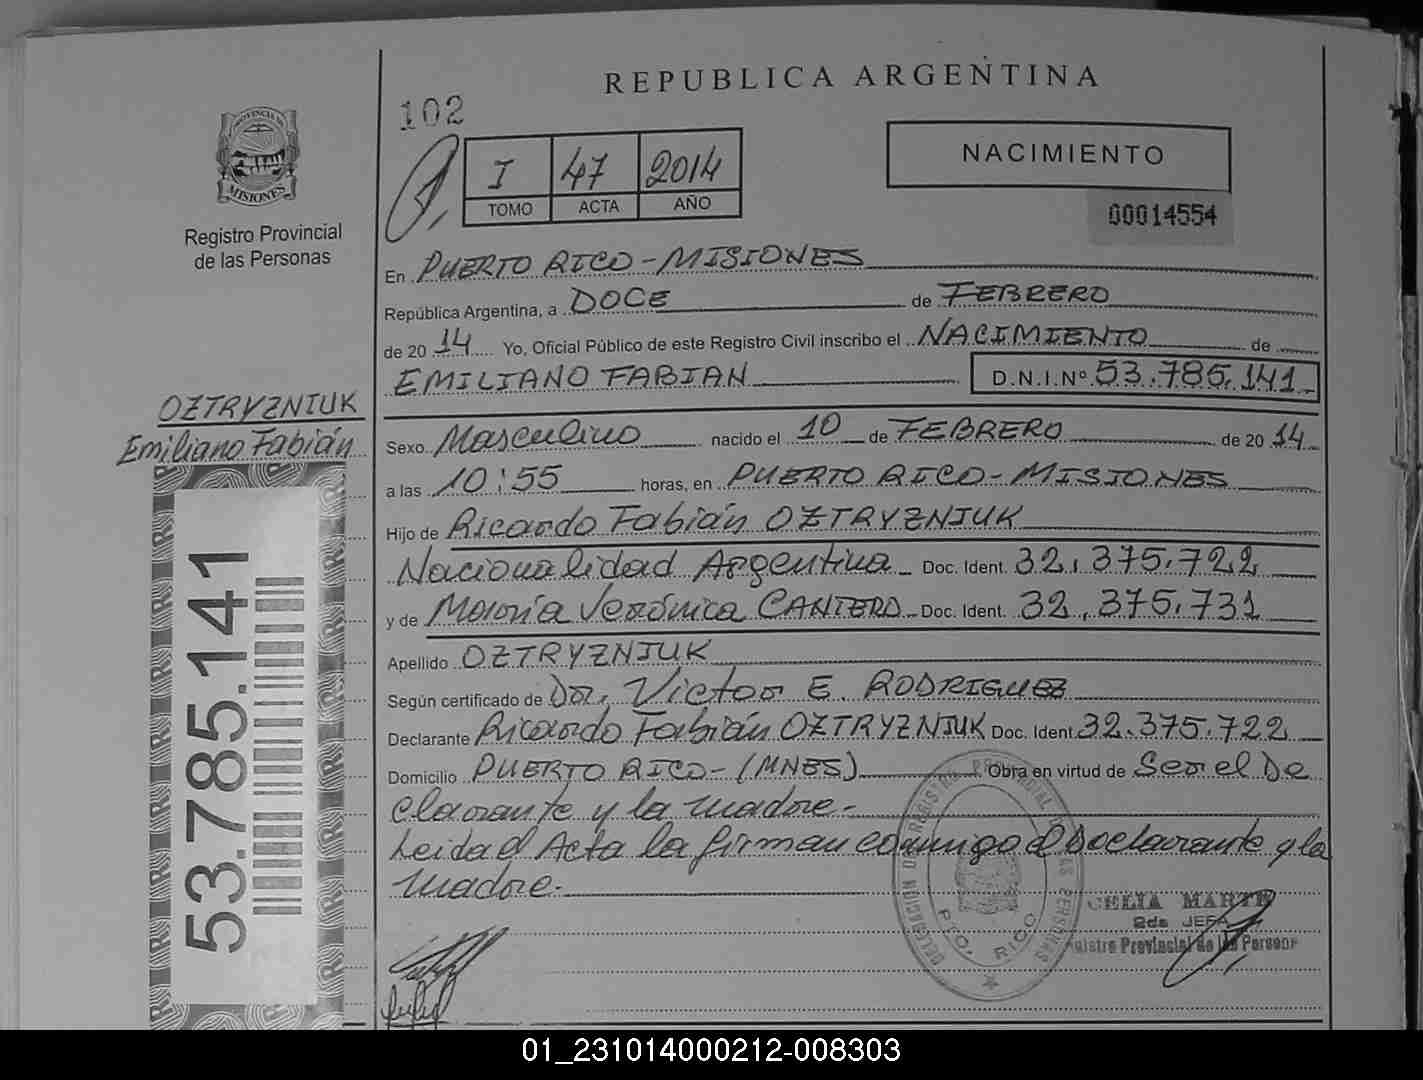 REPUBLICA ARGENTINA
102
PROVINCIA DE
MISIONES
Registro Provincial
de las Personas
I 47 2014
TOMO ACTA AÑO
NACIMIENTO
00014554
En PUERTO RICO - MISIONES
República Argentina, a DOCE de FEBRERO
de 2014 Yo, Oficial Público de este Registro Civil inscribo el NACIMIENTO de
EMILIANO FABIAN D.N.I.Nº 53.785.141
OZTRYZNIUK
Emiliano Fabián
Sexo Masculino nacido el 10 de FEBRERO de 2014
a las 10:55 horas, en PUERTO RICO - MISIONES
Hijo de Ricardo Fabián OZTRYZNIUK
Nacionalidad Argentina Doc. Ident. 32.375.722
y de María Verónica CANTERO Doc. Ident. 32.375.731
Apellido OZTRYZNIUK
Según certificado de Dr. Victor E. RODRIGUEZ
Declarante Ricardo Fabián OZTRYZNIUK Doc. Ident. 32.375.722
Domicilio PUERTO RICO - (MNES) Obra en virtud de Ser el De
clarante y la madre.-
Leida el Acta la firman conmigo el Declarante y la
madre.-
53.785.141
PTO. RICO
CELIA MARTE
2da JEFA
Registro Provincial de las Person
01_231014000212-008303